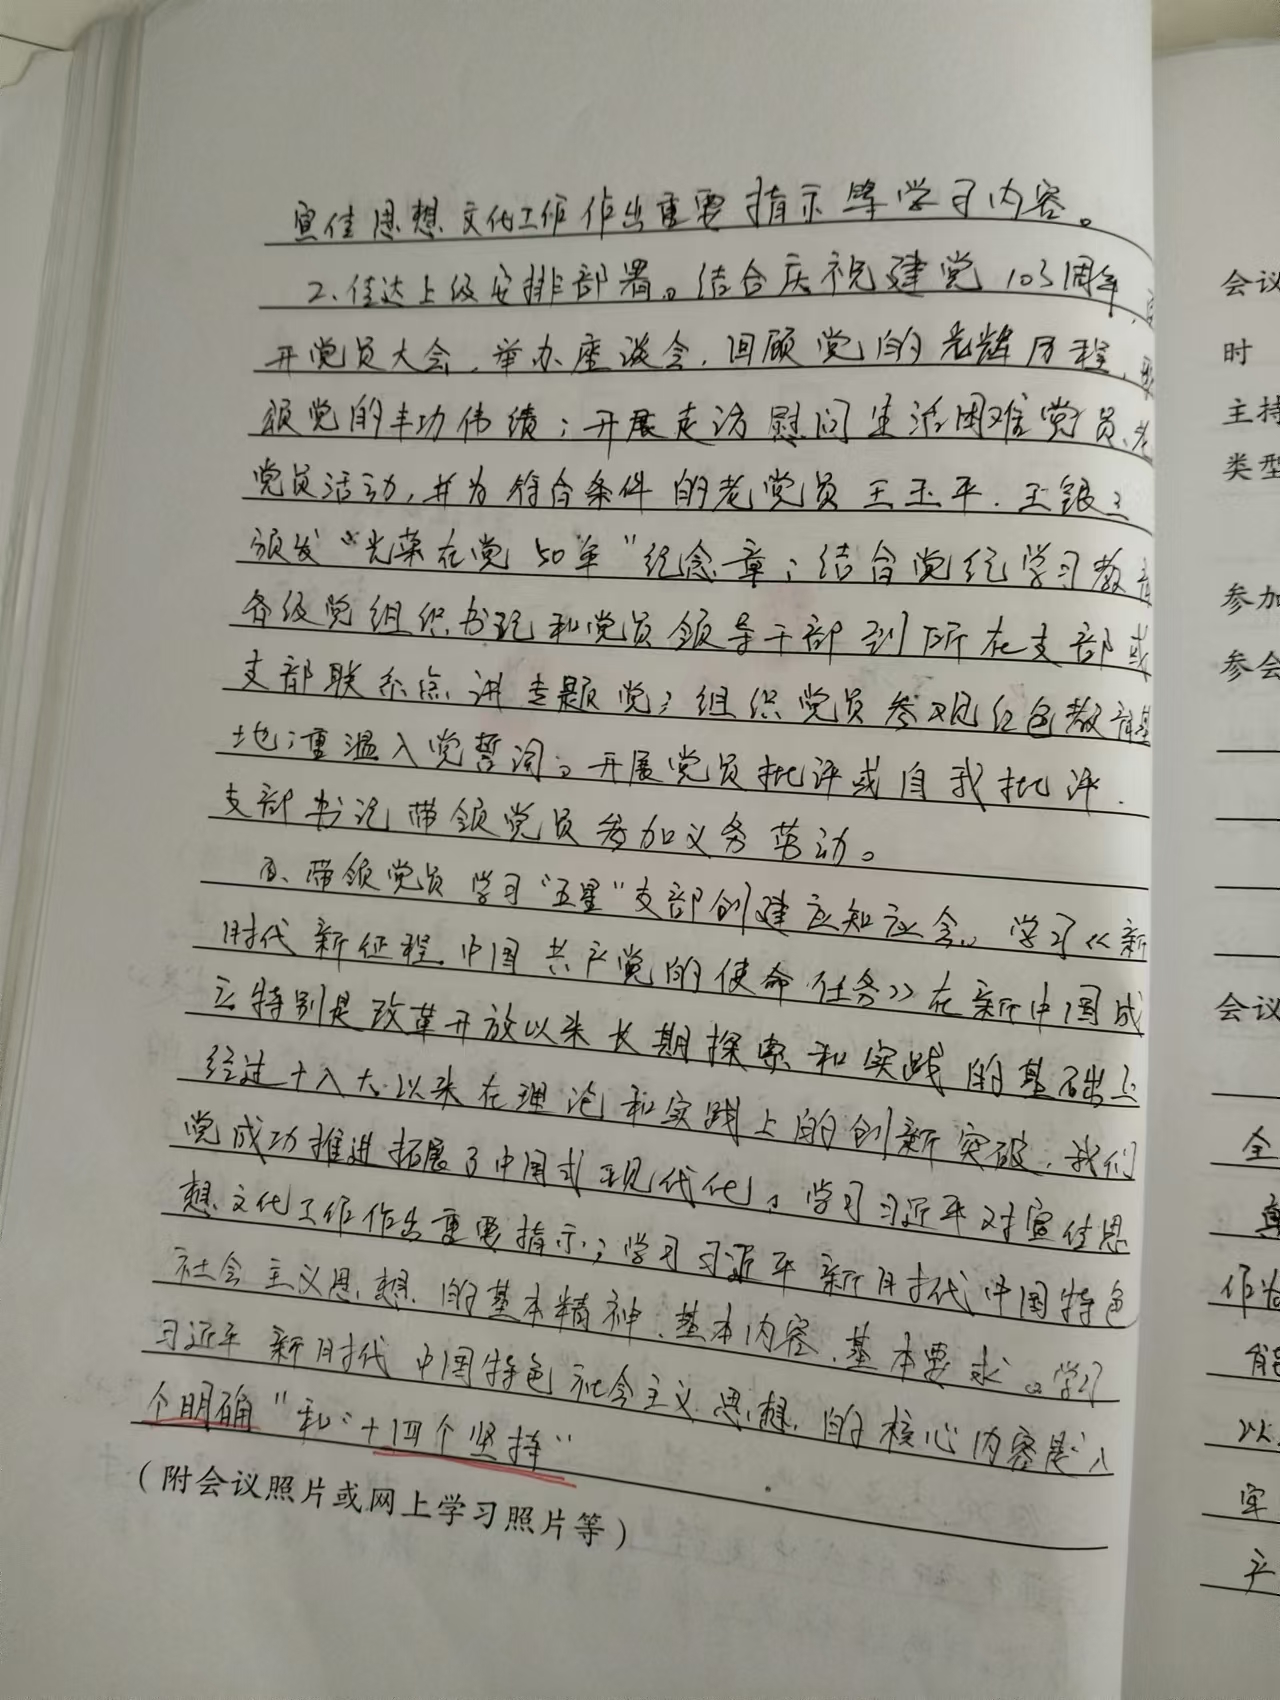 宣传思想文化工作作出重要指示等学习内容。
2.传达上级安排部署。结合庆祝建党103周年,
开党员大会,举办座谈会,回顾党的光辉历程,
颂党的丰功伟绩;开展走访慰问生活困难党员、老
党员活动,并为符合条件的老党员王玉平.王银
颁发“光荣在党50年”纪念章;结合党纪学习教育
各级党组织书记和党员领导干部到所在支部或
支部联系点讲专题党;组织党员参观红色教育基
地;重温入党誓词;开展党员批评或自我批评.
支部书记带领党员参加义务劳动。
五、带领党员学习“五星”支部创建应知应会。学习《新
时代新征程中国共产党的使命任务》在新中国成
立特别是改革开放以来长期探索和实践的基础上
经过十八大以来在理论和实践上的创新突破,我们
党成功推进拓展了中国式现代化。学习习近平对宣传思
想文化工作作出重要指示;学习习近平新时代中国特色
社会主义思想的基本精神、基本内容、基本要求。学习
习近平新时代中国特色社会主义思想的核心内容是“八
个明确”和“十四个坚持”
(附会议照片或网上学习照片等)
会议
时
主持
类型
参加
参会
会议
全
作为
以
产